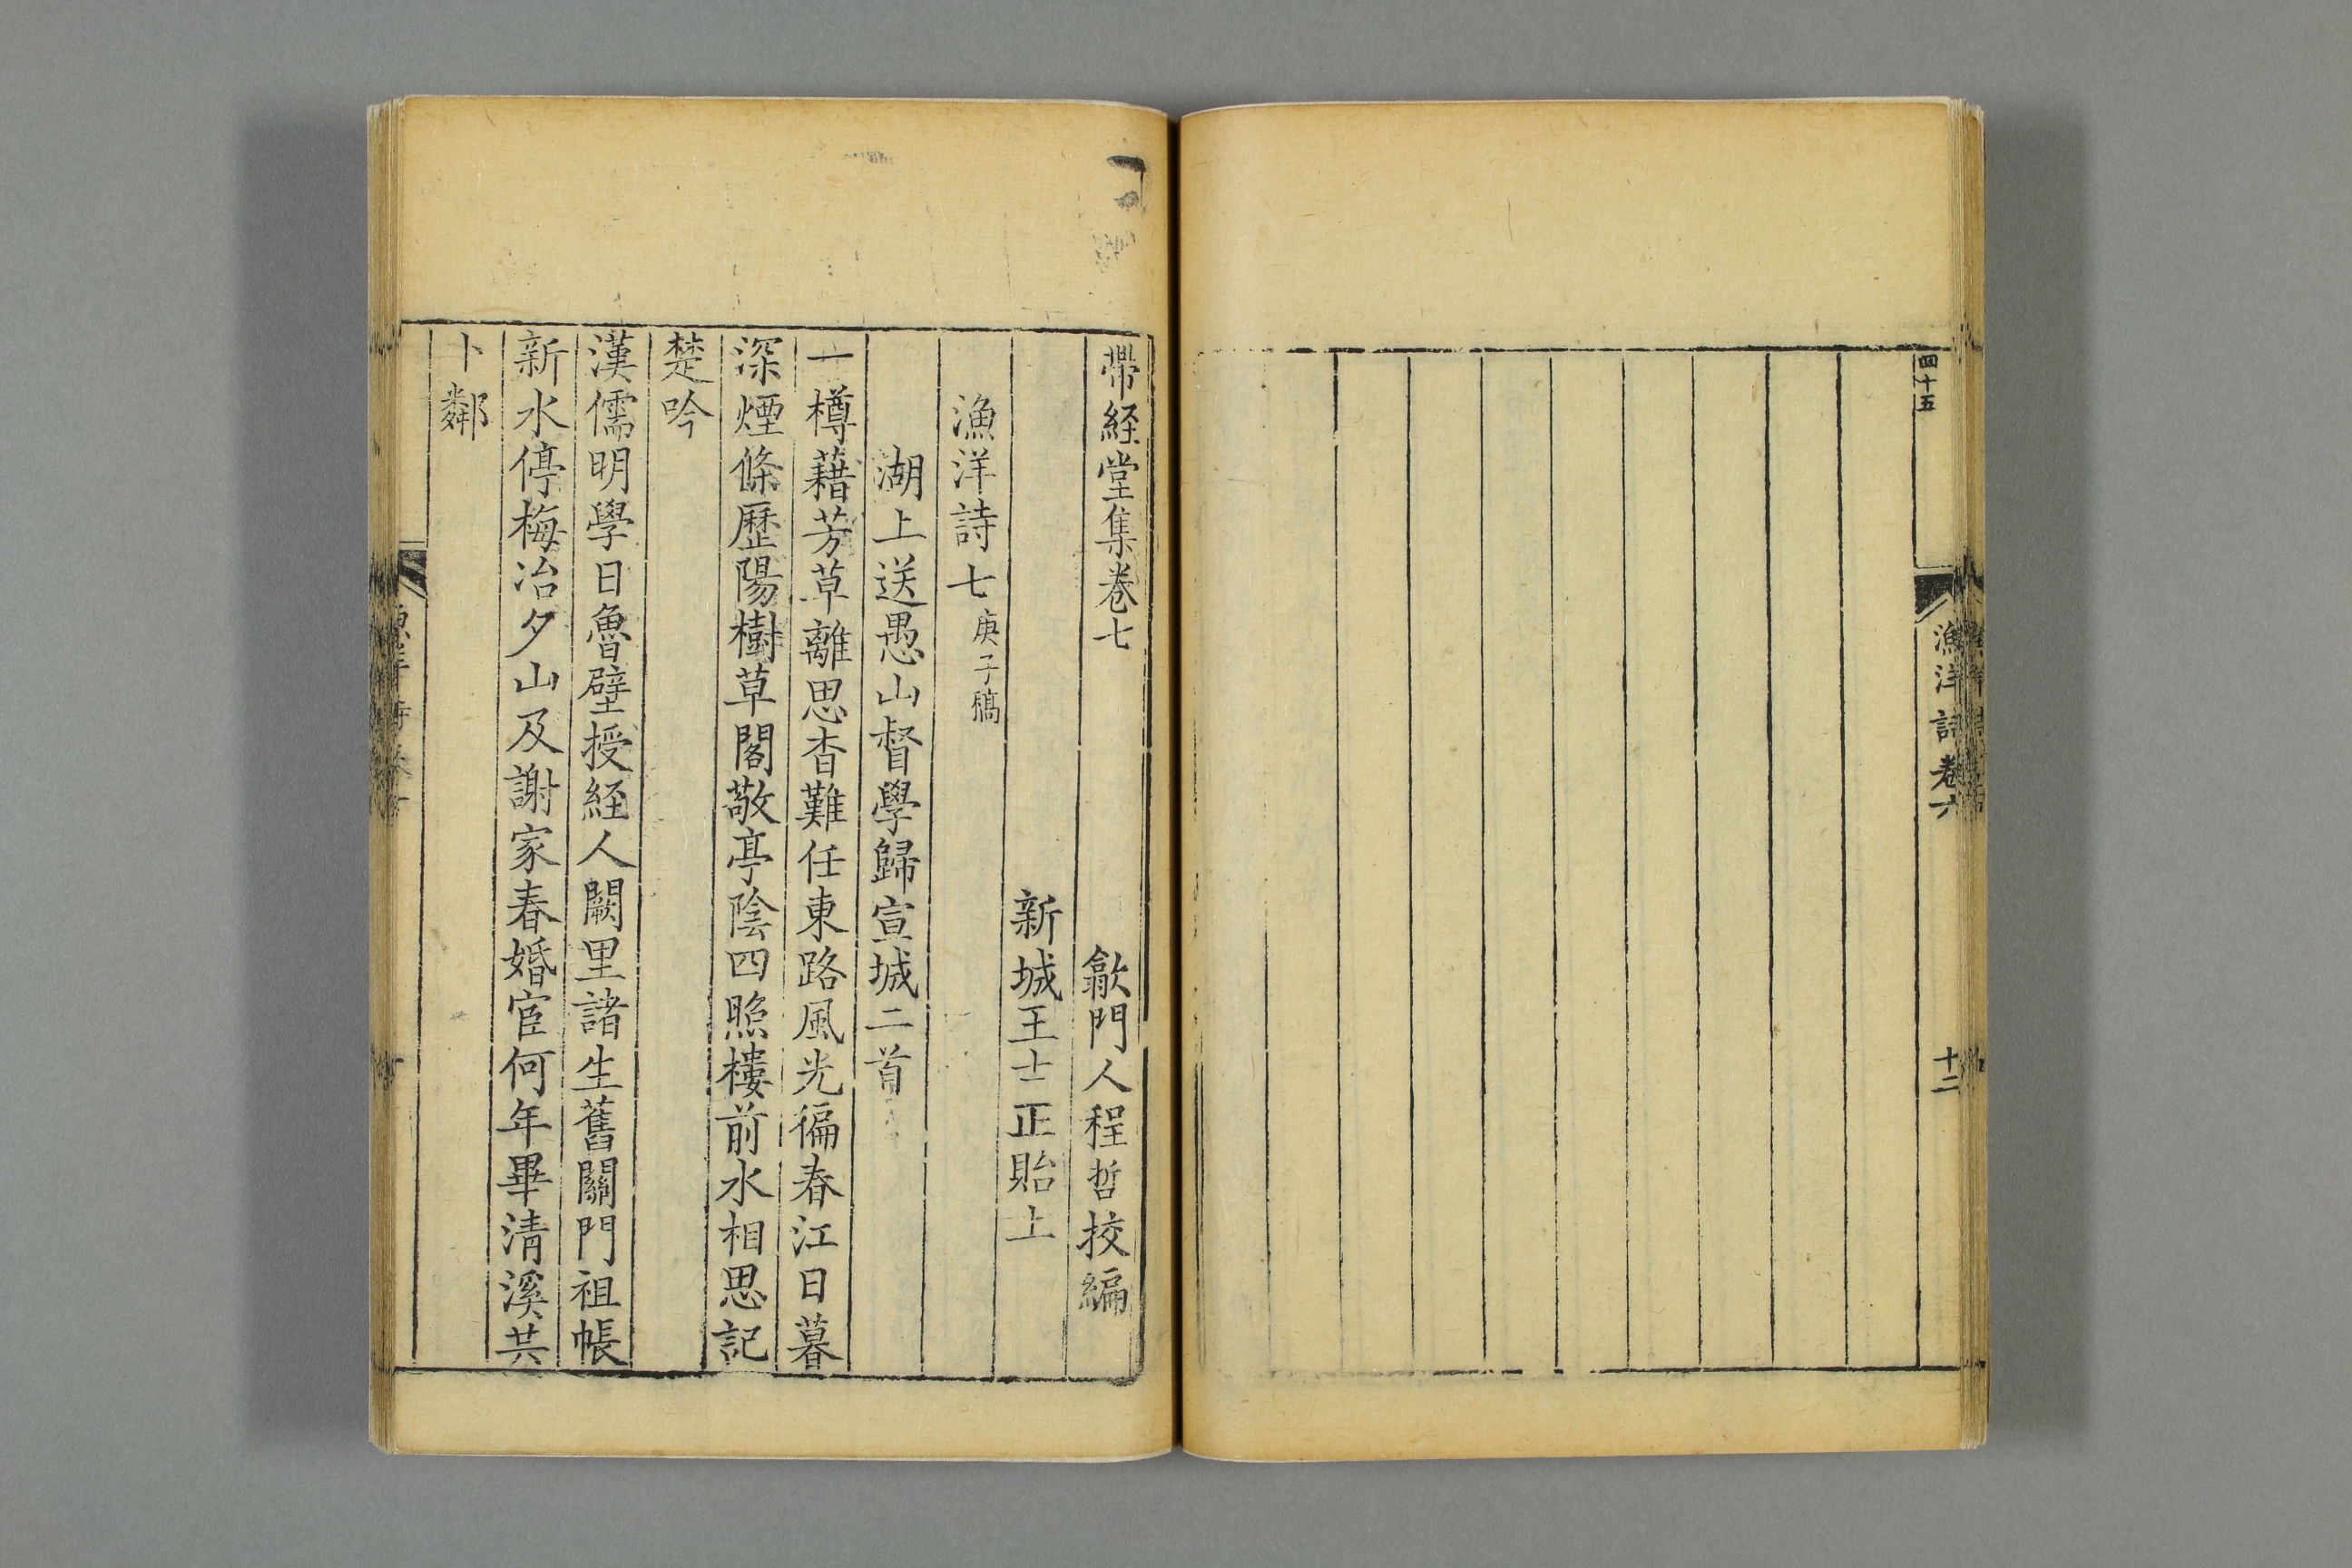 四十五
漁洋詩卷六
十二
帶経堂集卷七
歙門人程哲挍編
新城王士正貽上
漁洋詩七庚子稿
湖上送愚山督學歸宣城二首
一樽藉芳草離思杳難任東路風光徧春江日暮
深煙條歷陽樹草閣敬亭陰四照樓前水相思記
楚吟
漢儒明學日魯壁授経人闕里諸生舊關門祖帳
新水停梅冶夕山及謝家春婚宦何年畢清溪共
卜鄰